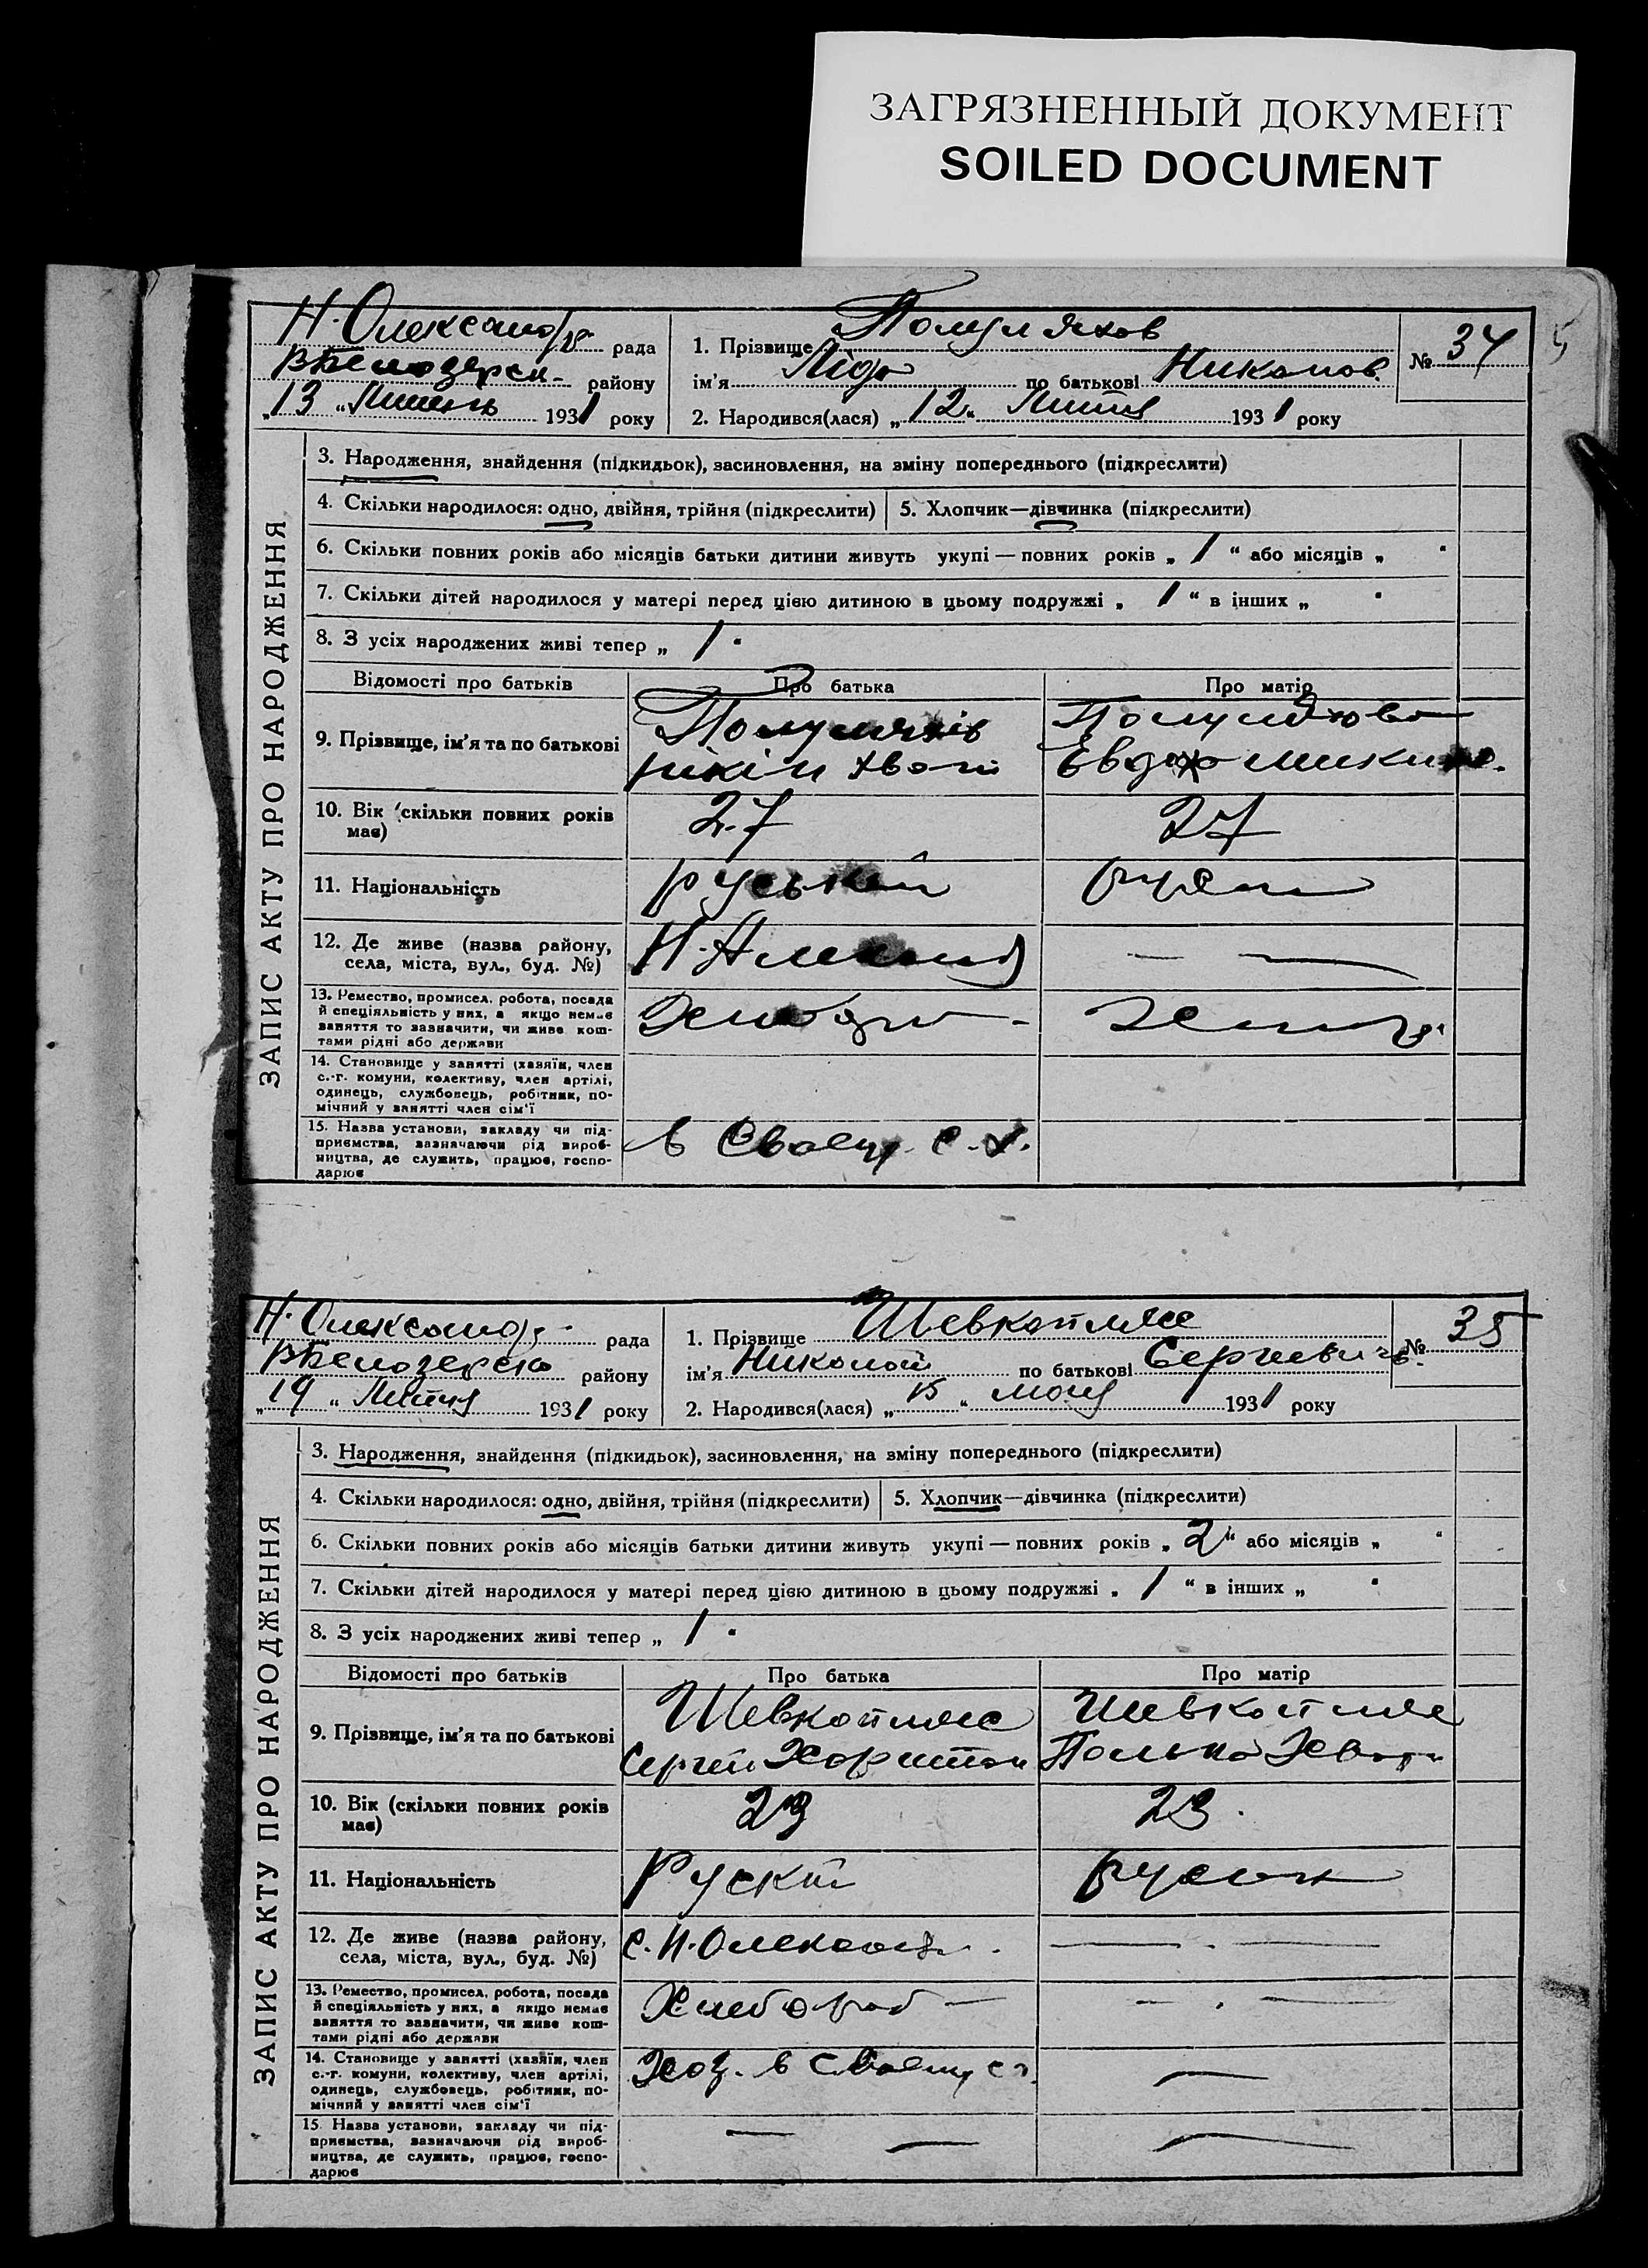 ЗАГРЯЗНЕННЫЙ ДОКУМЕНТ
SOILED DOCUMENT
Н. Олександр рада
ВБелозерск- району
„13“ Липень 1931 року
1. Прізвище Полуляхов
ім'я Ліда по батькові Никонов.
2. Народився(лася) „12“ Липня 1931 року
№ 34
5
ЗАПИС АКТУ ПРО НАРОДЖЕННЯ
3. Народження, знайдення (підкидьок), засиновлення, на зміну попереднього (підкреслити)
4. Скільки народилося: одно, двійня, трійня (підкреслити)
5. Хлопчик—дівчинка (підкреслити)
6. Скільки повних років або місяців батьки дитини живуть укупі — повних років „ 1 “ або місяців „ “
7. Скільки дітей народилося у матері перед цією дитиною в цьому подружжі „ 1 “ в інших „ “
8. З усіх народжених живі тепер „ 1 “
Відомості про батьків
Про батька
Про матір
9. Прізвище, ім'я та по батькові
10. Вік (скільки повних років має)
27
27
11. Національність
руський
12. Де живе (назва району,
села, міста, вул., буд. №)
13. Ремество, промисел, робота, посада
й спеціяльність у них, а якщо немає
заняття то зазначити, чи живе кош-
тами рідні або держави
14. Становище у занятті (хазяїн, член
с.-г. комуни, колективу, член артілі,
одинець, службовець, робітник, по-
мічний у занятті член сім'ї
15. Назва установи, закладу чи під-
приємства, зазначаючи рід вироб-
ництва, де служить, працює, госпо-
дарює
в Своему с.х.
Н. Олександр. рада
ВБелозерско району
„19“ Липня 1931 року
1. Прізвище Шевкопляс
ім'я Николай по батькові Сергиевич
2. Народився(лася) „15“ мая 1931 року
№ 35
ЗАПИС АКТУ ПРО НАРОДЖЕННЯ
3. Народження, знайдення (підкидьок), засиновлення, на зміну попереднього (підкреслити)
4. Скільки народилося: одно, двійня, трійня (підкреслити)
5. Хлопчик—дівчинка (підкреслити)
6. Скільки повних років або місяців батьки дитини живуть укупі — повних років „ 2 “ або місяців „ “
7. Скільки дітей народилося у матері перед цією дитиною в цьому подружжі „ 1 “ в інших „ “
8. З усіх народжених живі тепер „ 1 “
Відомості про батьків
Про батька
Про матір
9. Прізвище, ім'я та по батькові
Шевкопляс
Сергій Харитон
Шевкопляс
10. Вік (скільки повних років має)
23
23.
11. Національність
Руский
12. Де живе (назва району,
села, міста, вул., буд. №)
с. Н. Олександр.
13. Ремество, промисел, робота, посада
й спеціяльність у них, а якщо немає
заняття то зазначити, чи живе кош-
тами рідні або держави
Хлебороб —
14. Становище у занятті (хазяїн, член
с.-г. комуни, колективу, член артілі,
одинець, службовець, робітник, по-
мічний у занятті член сім'ї
Хоз. в своему
15. Назва установи, закладу чи під-
приємства, зазначаючи рід вироб-
ництва, де служить, працює, госпо-
дарює